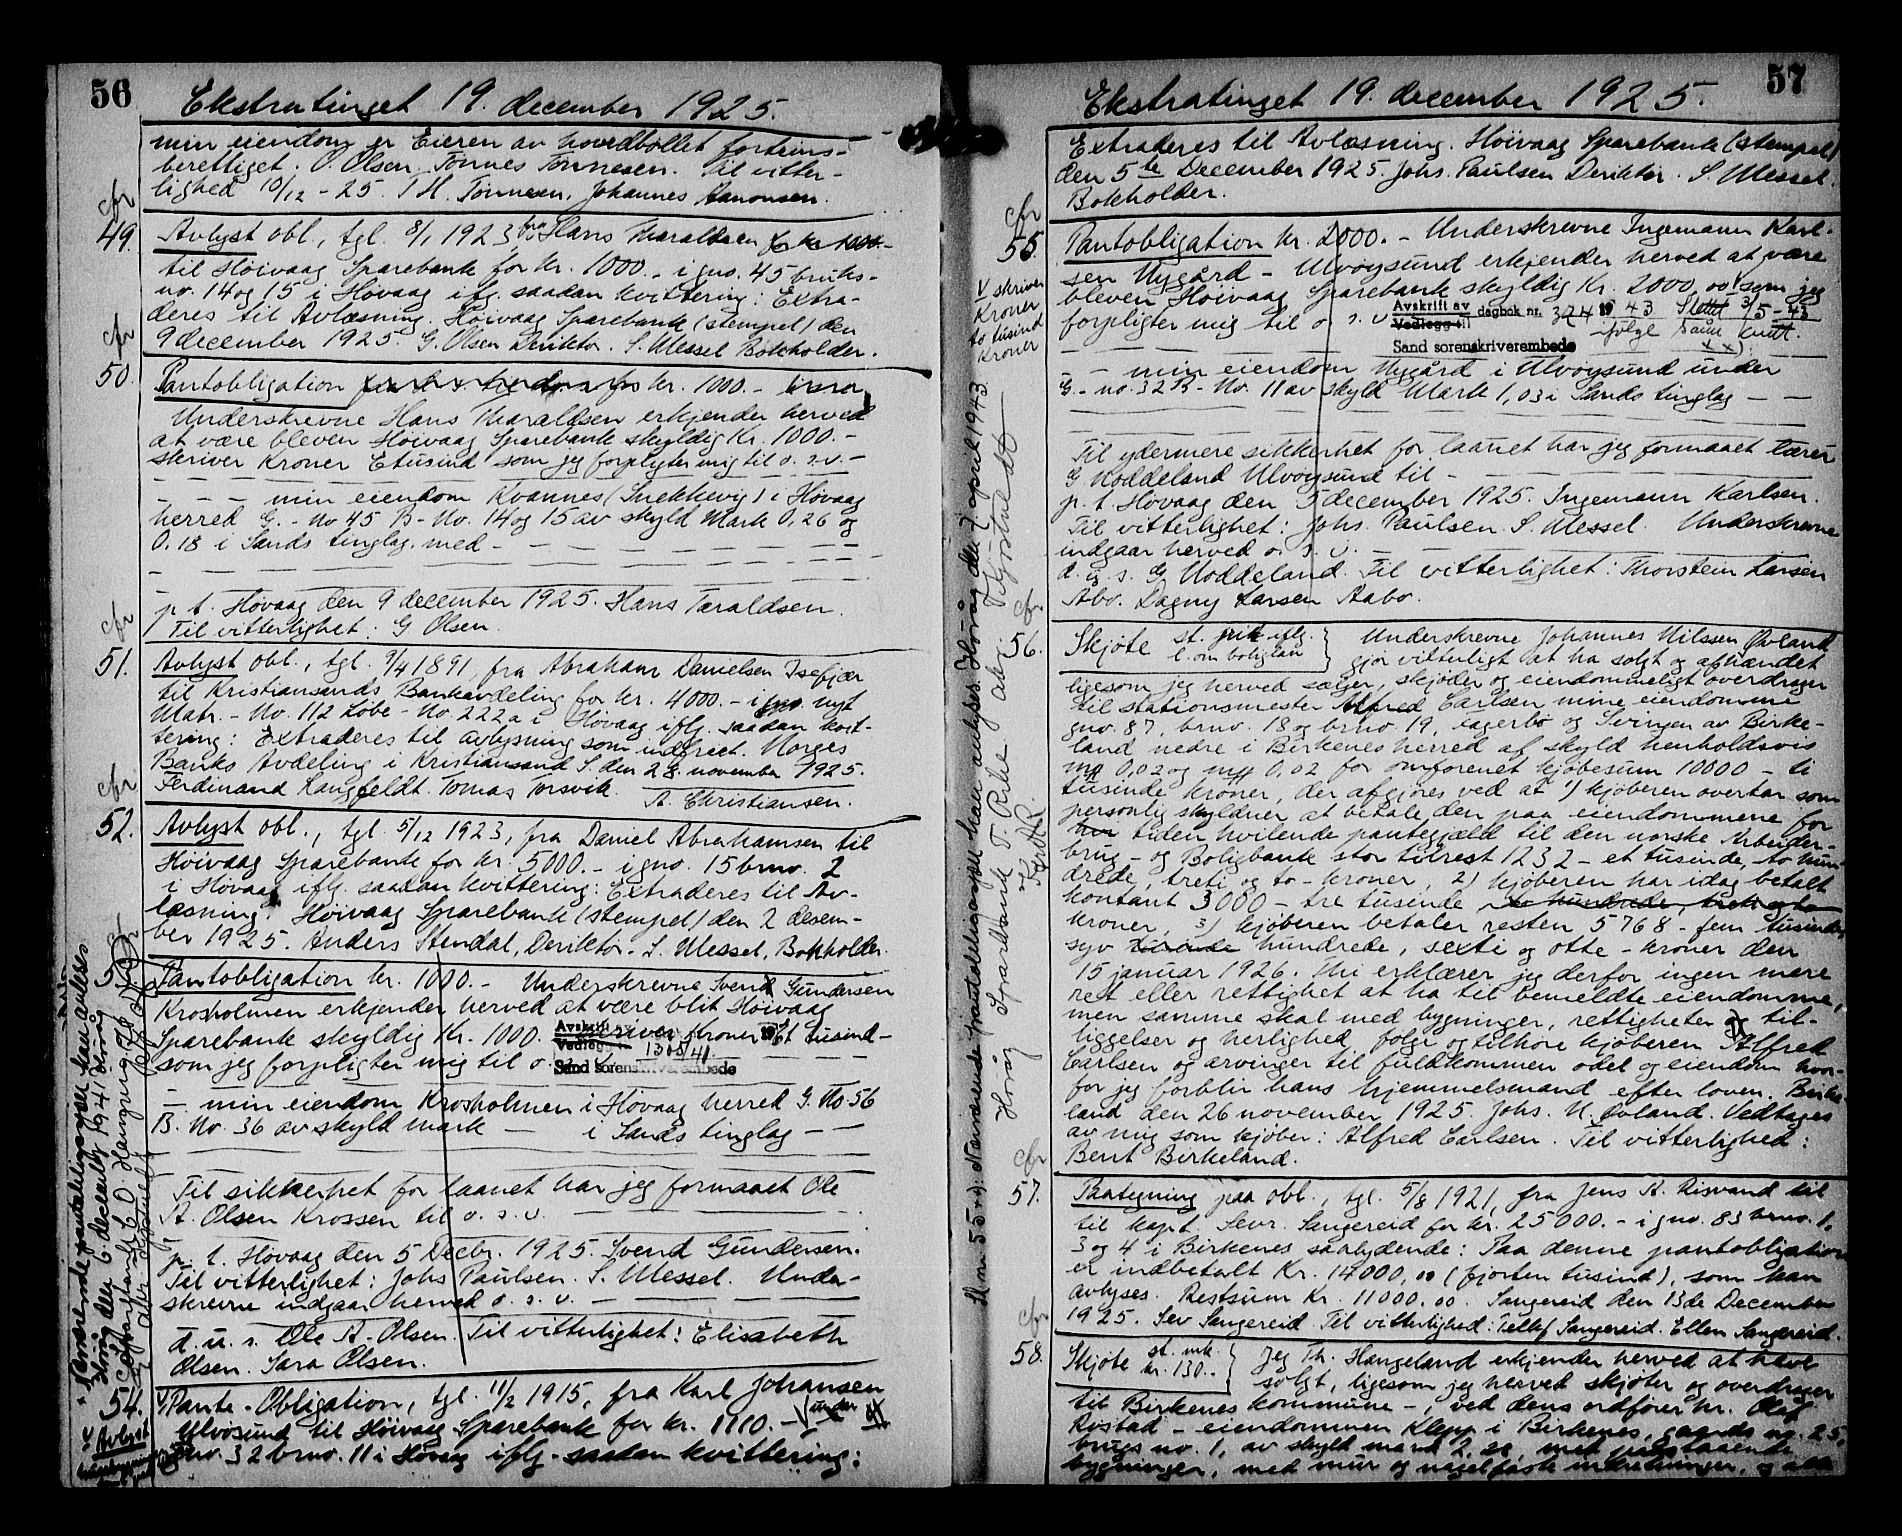 56
Ekstratinget 19. december 1925.
min eiendom er Eieren av hovedbøllet fortrins-
berettiget. O. Olsen. Tønnes Tønnesen. Til vitter-
lighed 10/12 - 25. T H. Tønnesen. Johannes Aanonsen.
cfr
49. Avlyst obl., tgl. 8/1 1923 fra Hans Tharaldsen
til Høivaag Sparebank for kr. 1000.- i gno. 45 bruks-
no. 14 og 15 i Høvaag ifg. saadan kvittering: Extra-
deres til Avlæsning. Høivaag Sparebank (stempel) den
9 december 1925. G. Olsen Deriktør. S. Messel Bokholder.
cfr
50. Pantobligation kr. 1000.-
Underskrevne Hans Tharaldsen erkjender herved
at være bleven Høivaag Sparebank skyldig Kr. 1000.-
skriver Kroner Etusind som jeg forpligter mig til o. s. v. -
- - - min eiendom Kvannes (Snekkevig) i Høvaag
herred G. - No 45 B - No. 14 og 15 av skyld Mark 0,26 og
0.18 i Sands tinglag. med -
p. t. Høvaag den 9 december 1925. Hans Taraldsen.
Til vitterlighet: G Olsen.
cfr
51. Avlyst obl., tgl. 9/4 1891, fra Abraham Danielsen Isefjær
til Kristiansands Bankavdeling for kr. 4000.- i nyt
Matr. - No. 112 Løbe - No. 222a i Høvaag iflg. saadan kvit-
tering: Extraderes til avlysning som indfriet. Norges
Banks Avdeling i Kristiansand S. den 28. november 1925.
Ferdinand Langfeldt. Tomas Torsvik. A. Christiansen.
cfr
52. Avlyst obl., tgl. 5/12 1923, fra Daniel Abrahamsen til
Høivaag Sparebank for kr. 5000.- i gno. 15 brno. 2
i Høvaag iflg. saadan kvittering: Extraderes til Av-
læsning. Høivaag Sparebank (stempel) den 2 desem-
ber 1925. Anders Stendal, Deriktør. S. Messel, Bokholder.
Pantobligation kr. 1000.- Underskrevne Svend Gundersen
Krosholmen erkjender herved at være blit Høivaag
Sparebank skyldig Kr. 1000. skriver Kroner Et tusind -
som jeg forpligter mig til o.
Avskrift av
Vedlegg til 1305/41
Sand sorenskriverembede
- min eiendom Krosholmen i Høvaag herred G. No 56
B. No. 36 av skyld mark - i Sands tinglag - -
Til sikkerhet for laanet har jeg formaaet Ole
A. Olsen Krossen til o. s. v.
p. t. Høvaag den 5 Decbr. 1925. Svend Gundersen.
Til vitterlighet: Johs Paulsen. S. Messel. Under-
skrevne indgaar herved o. s. v.
d. u. s. Ole A. Olsen. Til vitterlighet: Elisabeth
Olsen. Sara Olsen.
54. Pante-Obligation, tgl. 11/2 1915, fra Karl Johansen
Ulvøsund til Høivaag Sparebank for kr. 1110.- under
gno. 32 brno. 11 i Høvaag iflg. saadan kvittering:
Avlyst
Nærværende pantobligasjon kan avleses
Høvåg den 6 december 1941 Høvåg
57
Ekstratinget 19. december 1925.
Extraderes til Avlæsning. Høivaag Sparebank (stempel)
den 5te December 1925. Johs. Paulsen Deriktør. S. Messel.
Bokholder.
cfr
55. Pantobligation kr. 2000.- Underskrevne Ingemann Karl-
sen Nygård - Ulvøysund erkjender herved at være
bleven Høivaag Sparebank skyldig Kr. 2000,00 som jeg
forpligter mig til o. s. v
V skriver
Kroner
to tusind
Kroner
Avskrift av
Vedlegg til dagbok nr. 324 1943 Slettet 3/5-43
ifølge kvitt.
Sand sorenskriverembede xx)
- - min eiendom Nygård i Ulvøysund under
G. - no. 32 B - No. 11 av skyld Mark 1,03 i Sands tinglag - -
Til ydermere sikkerhet for laanet har jeg formaaet lærer
G Noddeland Ulvøysund til -
p. t. Høvaag den 5 december 1925. Ingemann Karlsen.
Til vitterlighet: Johs. Paulsen. S. Messel. Underskrevne
indgaar herved o. s. v.
d. u. s. G. Noddeland. Til vitterlighet: Thorstein Larsen
Abo. Dagny Larsen Aabo.
Nærværende pantobligasjon kan avlyses. Høvåg den 7 april 1943
Høvåg Sparebank T. Rike
cfr
56. Skjøte Underskrevne Johannes Nilssen Øvland
gjør vitterligt at ha solgt og afhændet
ligesom jeg herved sælger, skjøder og eiendommeligt overdrager
til stationsmester Alfred Carlsen mine eiendomme
gno. 87, brno. 18 og brno. 19, Lagerbo og Svingen av Birke-
land nedre i Birkenes herred af skyld henholdsvis
mk 0,02 og mk 0,02 for omforenet kjøbesum 10000 - ti
tusinde kroner, der afgjøres ved at 1) kjøberen overtar som
personlig skyldner at betale den paa eiendommene for
tiden hvilende pantegjæld til den norske Arbeider-
brug - og Boligbank stor tilrest 1232 - et tusinde, to hun-
drede, treti og to - kroner, 2) kjøberen har idag betalt
kontant 3000 - tre tusinde to hundrede, treti og to
kroner, 3) kjøberen betaler resten 5768 - fem tusinde,
syv hundrede, sexti og otte - kroner den
15 januar 1926. Thi erklærer jeg derfor ingen mere
ret eller rettighet at ha til bemeldte eiendomme,
men samme skal med bygninger, rettigheter til-
liggelser og herlighed følge og tilhøre kjøberen Alfred
Carlsen og arvinger til fuldkommen odel og eiendom hvor-
for jeg forblir hans hjemmelsmand efter loven. Birke-
land den 26 november 1925. Johs. N. Øvland. Vedtages
av mig som kjøber: Alfred Carlsen. Til vitterlighed:
Bent Birkeland.
cfr
57. Paategning paa obl., tgl. 5/8 1921, fra Jens K. Risvand til
til kapt. Sevr. Sangereid for kr. 25000.- i gno. 83 brno. 1,
3 og 4 i Birkenes saalydende: Paa denne pantobligation
er indbetalt Kr. 14000,00 (fjorten tusind), som kan
avlyses. Restsum Kr. 11000.00. Sangereid den 13de December
1925. Sev Sangereid. Til vitterlighed: Tellef Sangereid. Ellen Sangereid.
cfr
58. Skjøte st. mk. kr. 130.- Jeg Th. Haugeland erkjender herved at have
solgt, ligesom jeg herved skjøter og overdrager
til Birkenes kommune -, ved dens ordfører hr. Olaf
Rostad - eiendommen Klepp i Birkenes, gaards no. 25,
brugs no. 1, av skyld mark med paastaaende
bygninger, med mur og nagelfaste indretninger, og alle